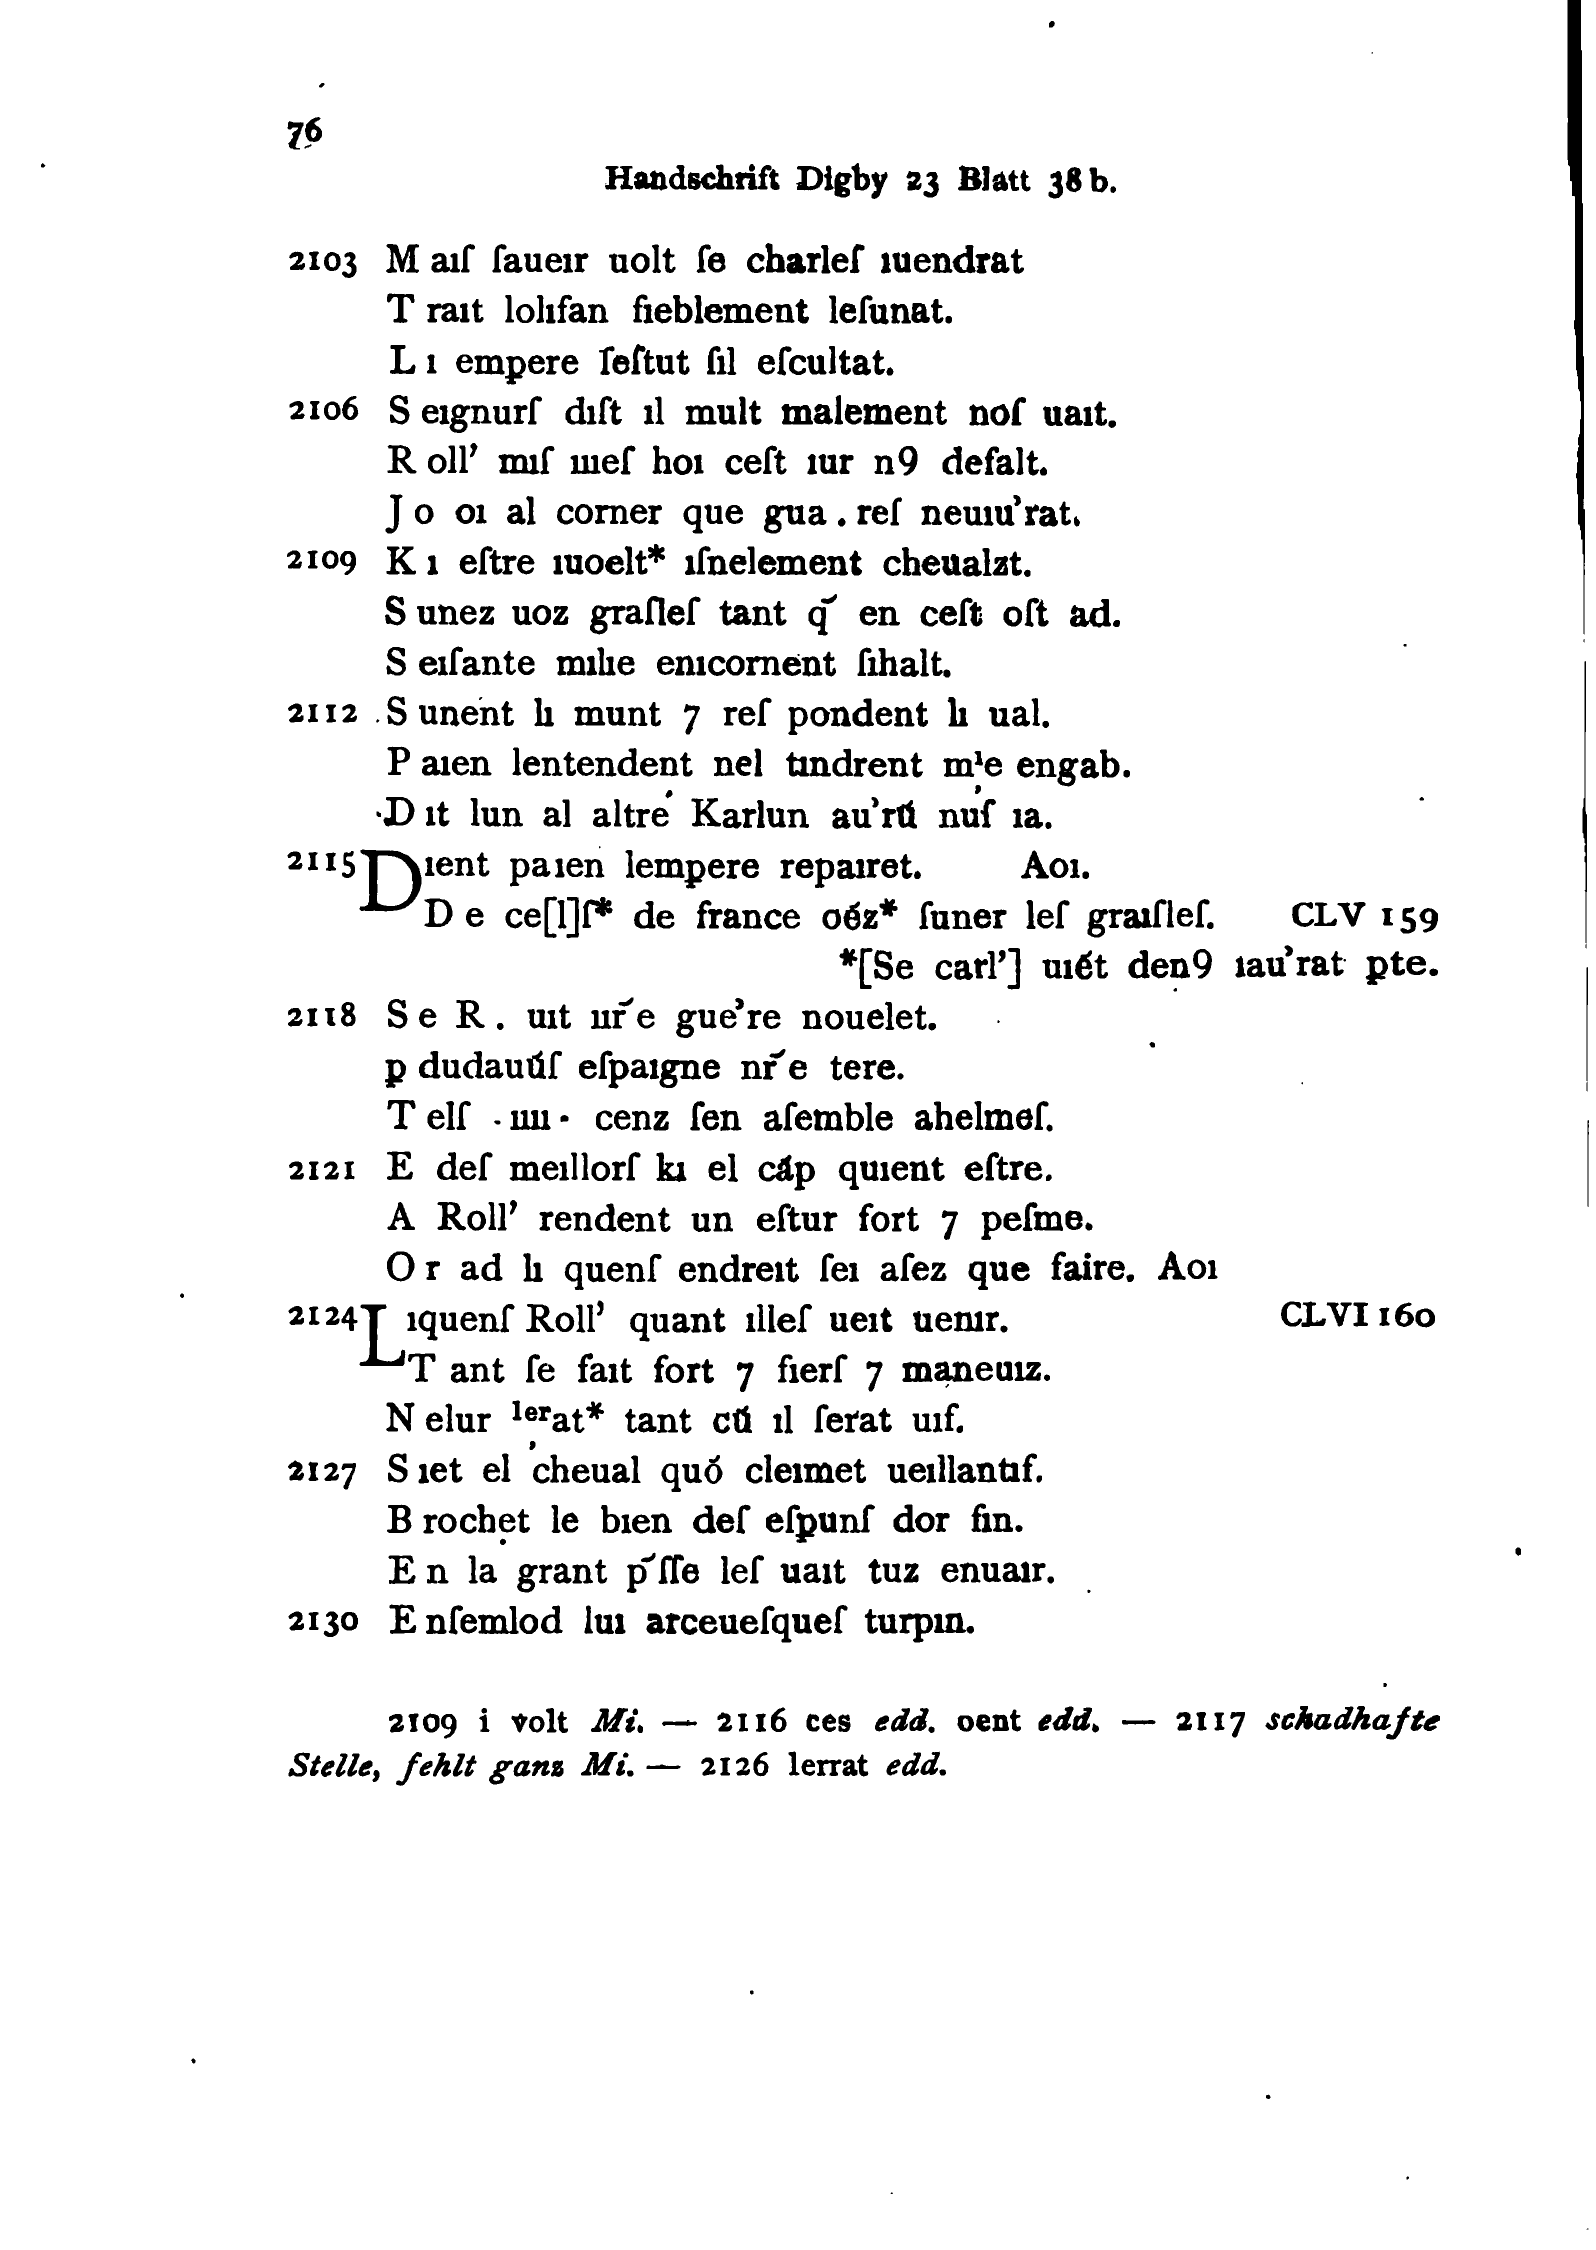 76
Handschrift Digby 23 Blatt 38 b.
2103 M aıſ ſaueır uolt ſe charleſ ıuendrat
T raıt lolıfan fıeblement leſunat.
L ı empere ſeſtut ſıl eſcultat.
2106 S eıgnurſ dıſt ıl mult malement noſ uaıt.
R oll’ mıſ nıeſ hoı ceſt ıur n9 defalt.
J o oı al corner que gua . reſ neuıu’rat.
2109 K ı eſtre ıuoelt* ıſnelement cheualzt.
S unez uoz graſleſ tant q̄ en ceſt oſt ad.
S eıſante mılıe enıcornent ſıhalt.
2112 S unent lı munt 7 reſ pondent lı ual.
P aıen lentendent nel tındrent mıe engab.
D ıt lun al altre Karlun au’rū nuſ ıa.
2115 Dıent paıen lempere repaıret. Aoı.
D e ce[l]ſ* de france oéz* ſuner leſ graıſleſ. CLV 159
*[Se carl’] uıét den9 ıau’rat pte.
2118 S e R . uıt ur̄e gue’re nouelet.
p dudauūſ eſpaıgne nr̄e tere.
T elſ · ıııı · cenz ſen aſemble ahelmeſ.
2121 E deſ meıllorſ kı el cāp quıent eſtre.
A Roll’ rendent un eſtur fort 7 peſme.
O r ad lı quenſ endreıt ſeı aſez que faire. Aoı
2124 L ıquenſ Roll’ quant ılleſ ueıt uenır. CLVI 160
T ant ſe faıt fort 7 fıerſ 7 maneuız.
N elur lerat* tant cū ıl ſerat uıf.
2127 S ıet el cheual quó cleımet ueıllantıf.
B rochet le bıen deſ eſpunſ dor fin.
E n la grant p̄ſſe leſ uaıt tuz enuaır.
2130 E nſemlod luı arceueſqueſ turpın.
2109 i volt Mi. — 2116 ces edd. oent edd. — 2117 schadhafte
Stelle, fehlt ganz Mi. — 2126 lerrat edd.